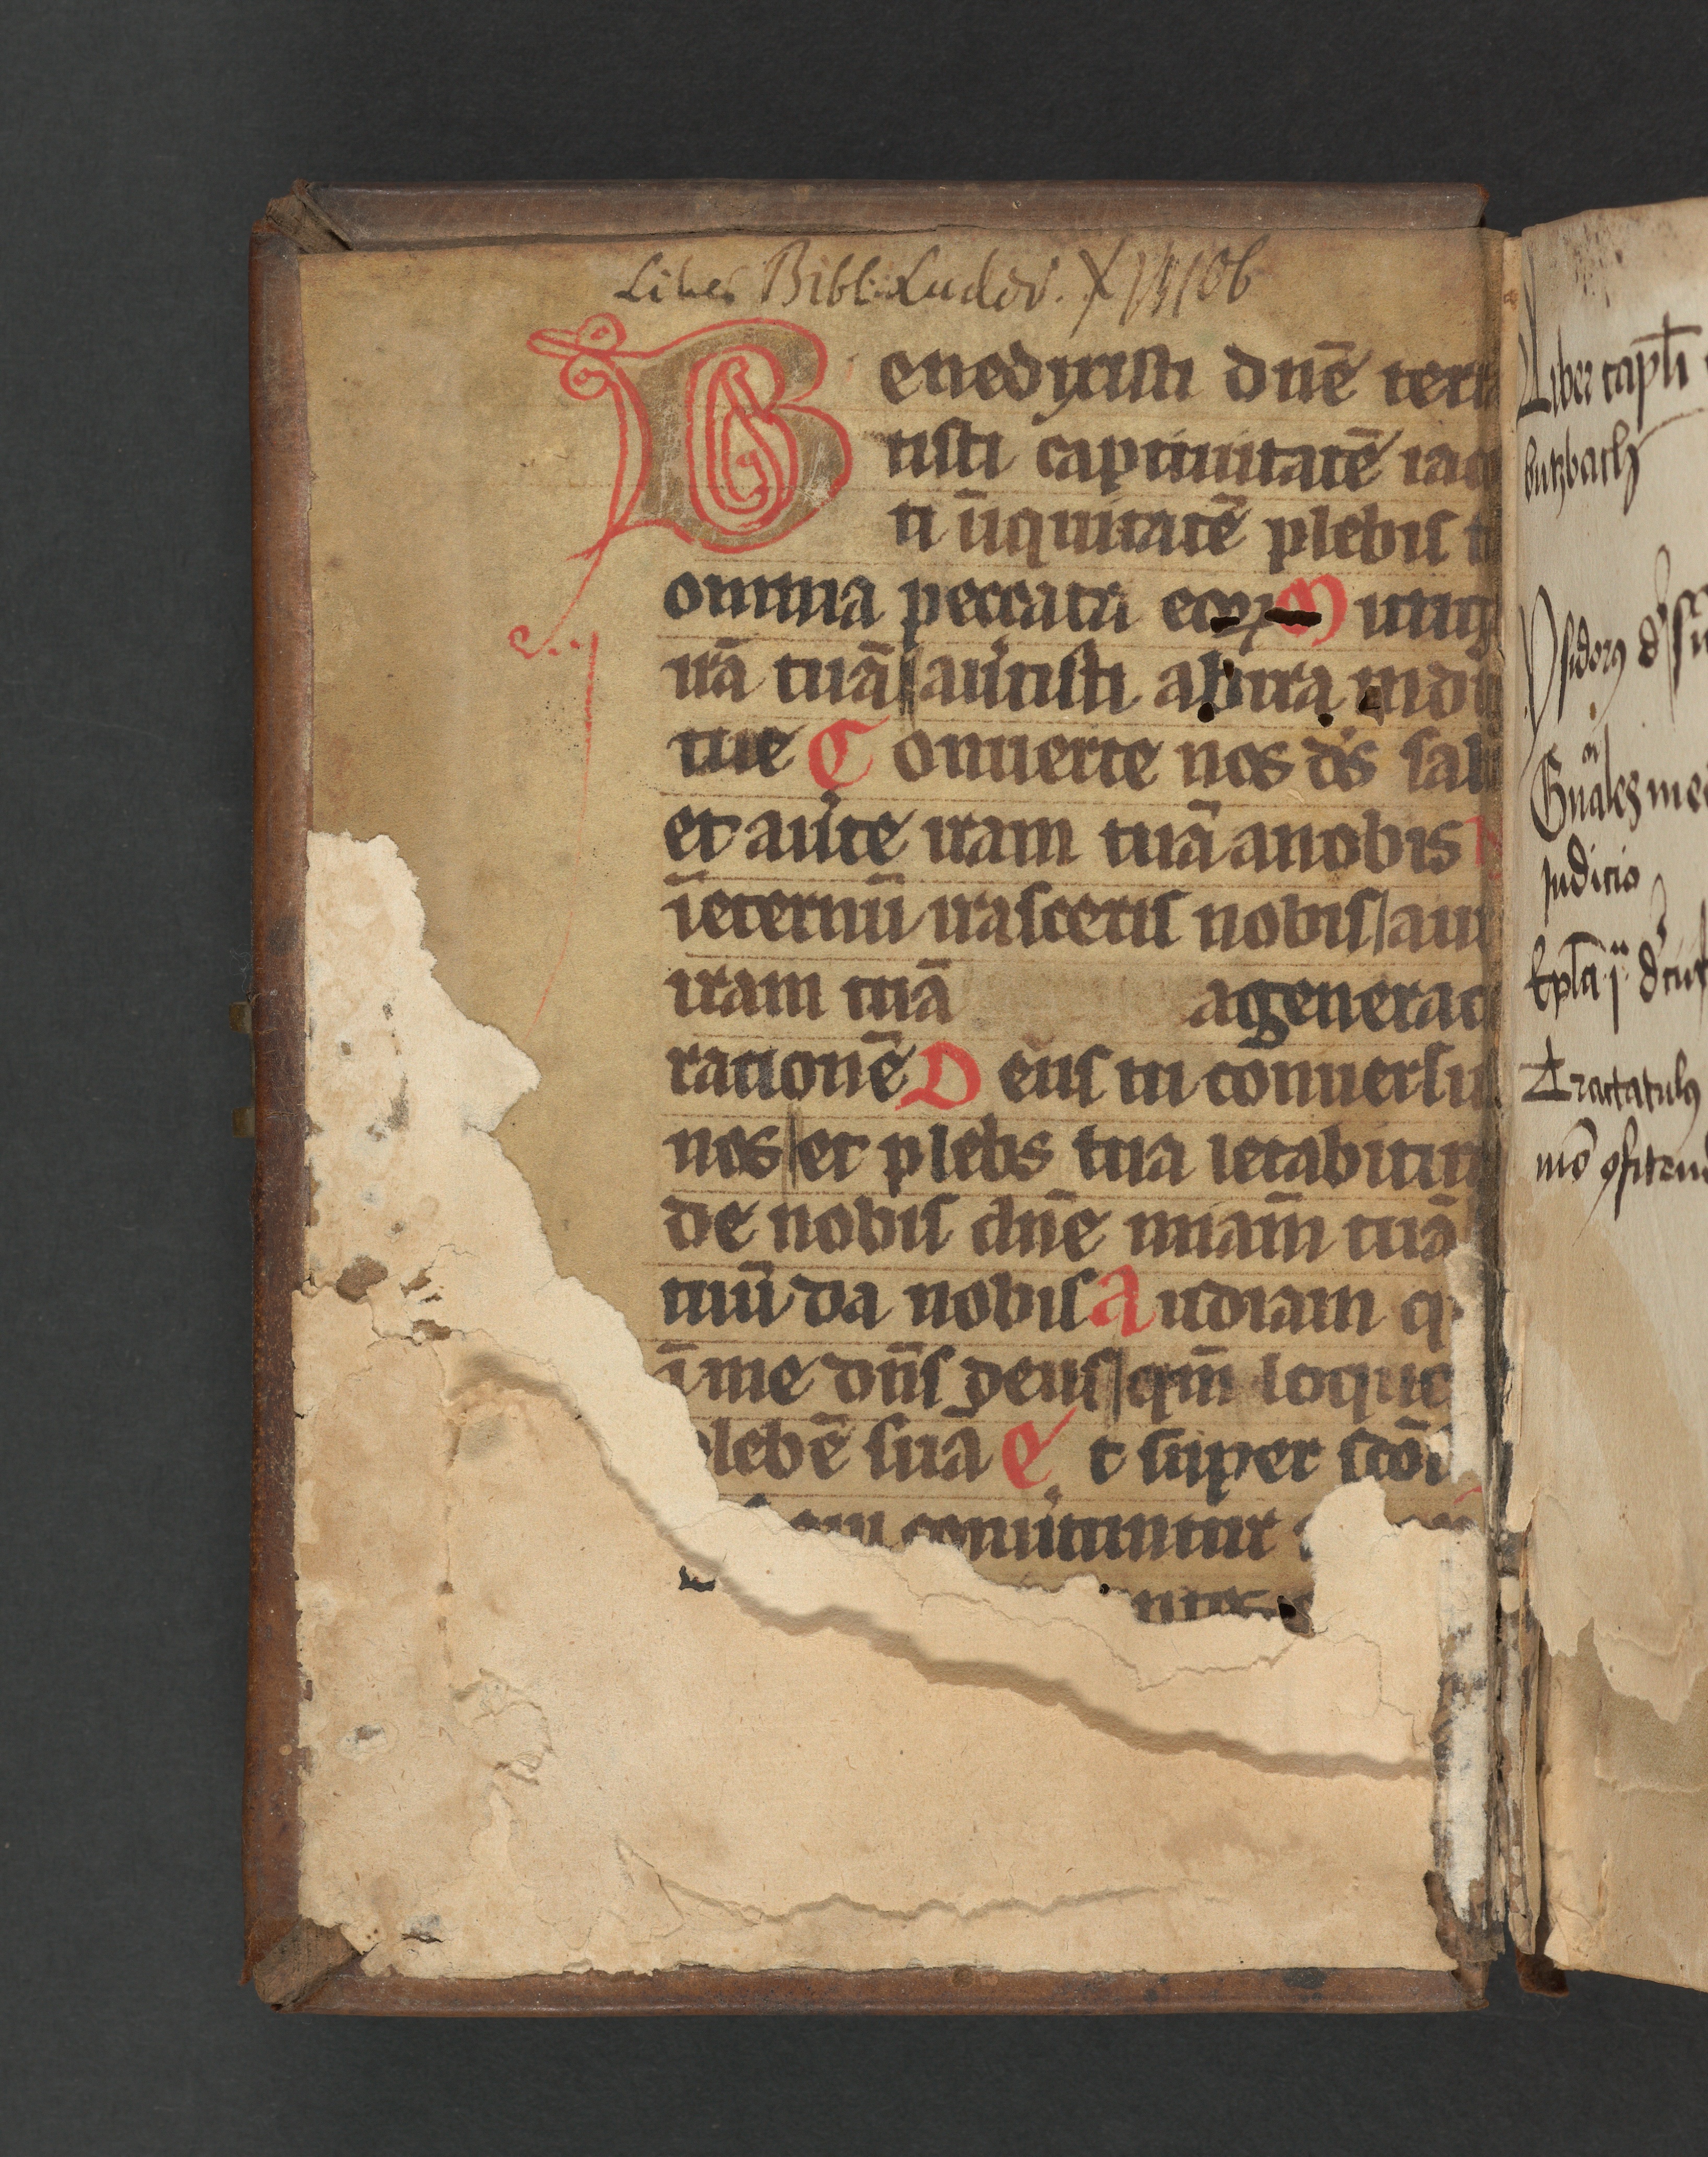 Liber Bibl. Ludov.
Benedixisti dnē terr
tisti captiuitatē iac
ti īiquitatē plebis t
omnia peccata eoꝝ Mitig
irā tuā auˀtisti ab ira indi
tue Conuerte nos dˀs sal
et auˀte iram tuā a nobis N
īeternū irasceris nobis au
iram tuā a generac
rationē Deus tu conuersu
nos et plebs tua letabitur
de nobis dnē miam̄ tuā
tuū da nobis Audiam q
ī me dn̄s deus qm̄ loque
plebē suā Et super scōs
conuˀtuntur
Liber capl̄i
butzbach
Ysidorꝯ dˀ
Gn̄ales
judicio
Epl̄a
Tractatulꝯ
mō ꝯfitend